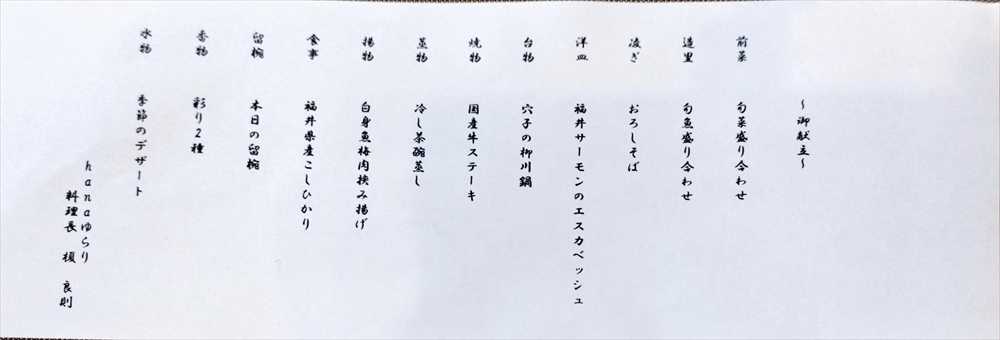 ~御献立~
前菜 旬菜盛り合わせ
造里 旬魚盛り合わせ
凌ぎ おろしそば
洋皿 福井サーモンのエスカベッシュ
台物 穴子の柳川鍋
焼物 国産牛ステーキ
蒸物 冷し茶碗蒸し
揚物 白身魚梅肉挟み揚げ
食事 福井県産こしひかり
留椀 本日の留椀
香物 彩り2種
水物 季節のデザート
hanaゆらり
料理長 榎 良則